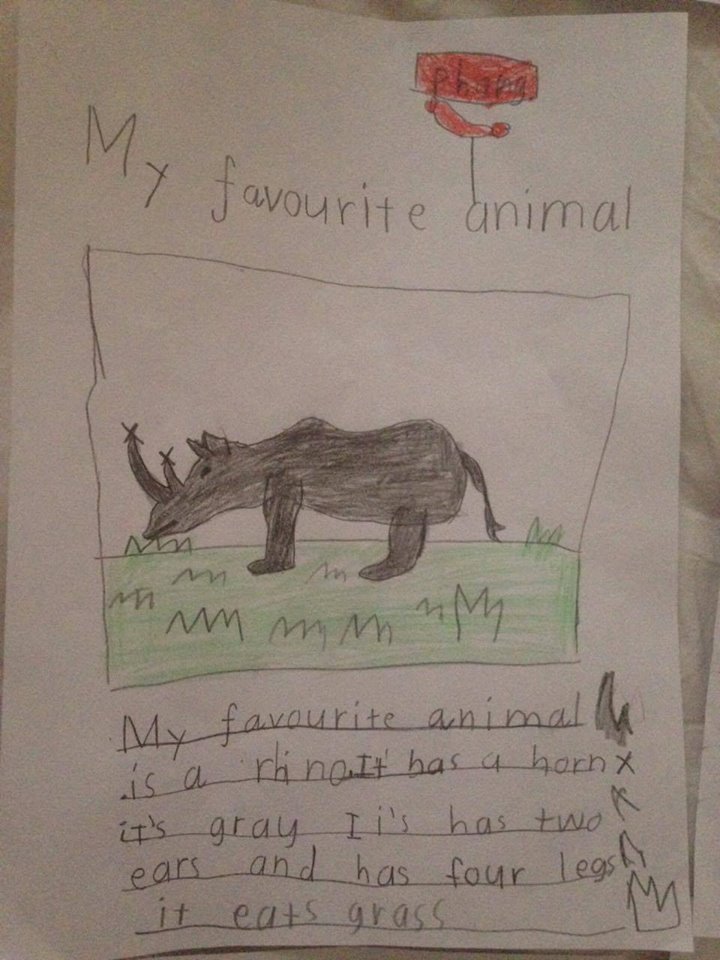 phang
My favourite animal
My favourite animal
is a rhino.It has a horn
it's gray I i's has two
ears and has four legs
it eats grass